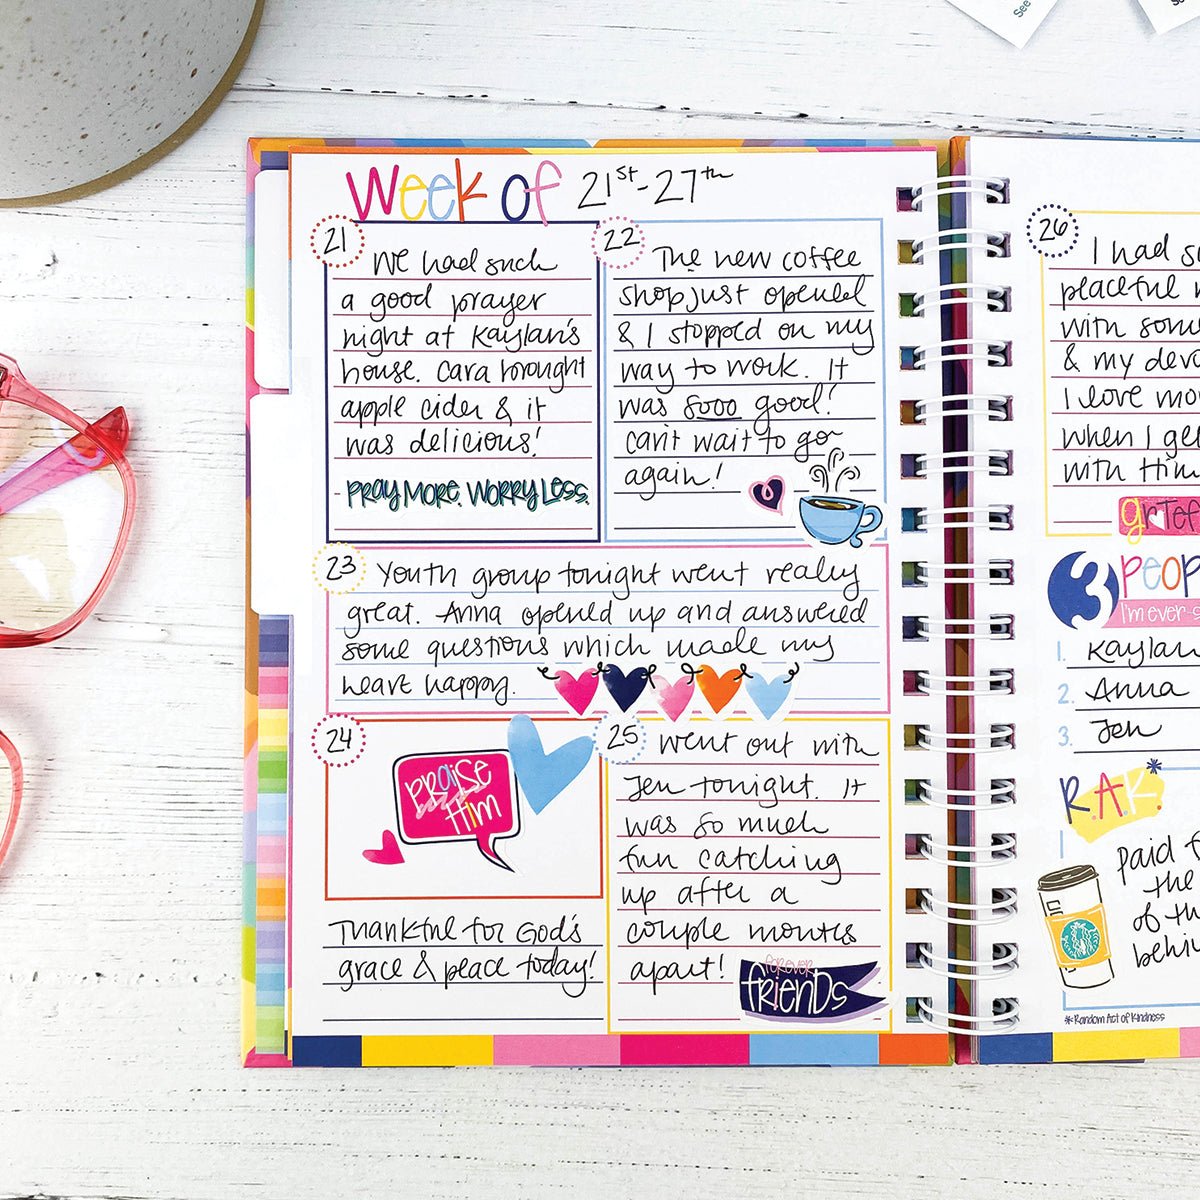 See
Week of 21st-27th
21
We had such
a good prayer
night at Kaylan's
house. Cara brought
apple cider & it
was delicious!
- Pray More. Worry Less.
22
The new coffee
shop just opened
& I stopped on my
way to work. It
was sooo good!
can't wait to go
again!
23
Youth group tonight went really
great. Anna opened up and answered
some questions which made my
heart happy.
24
Praise
Him
Thankful for God's
grace & peace today!
25
Went out with
Jen tonight. It
was so much
fun catching
up after a
couple months
apart!
forever
friends
26
I had
peaceful
with
& my
I love
when I
with Him
3
I'm
1. Kaylan
2. Anna
3. Jen
R.A.K.*
paid
the
of
*Random Act of Kindness